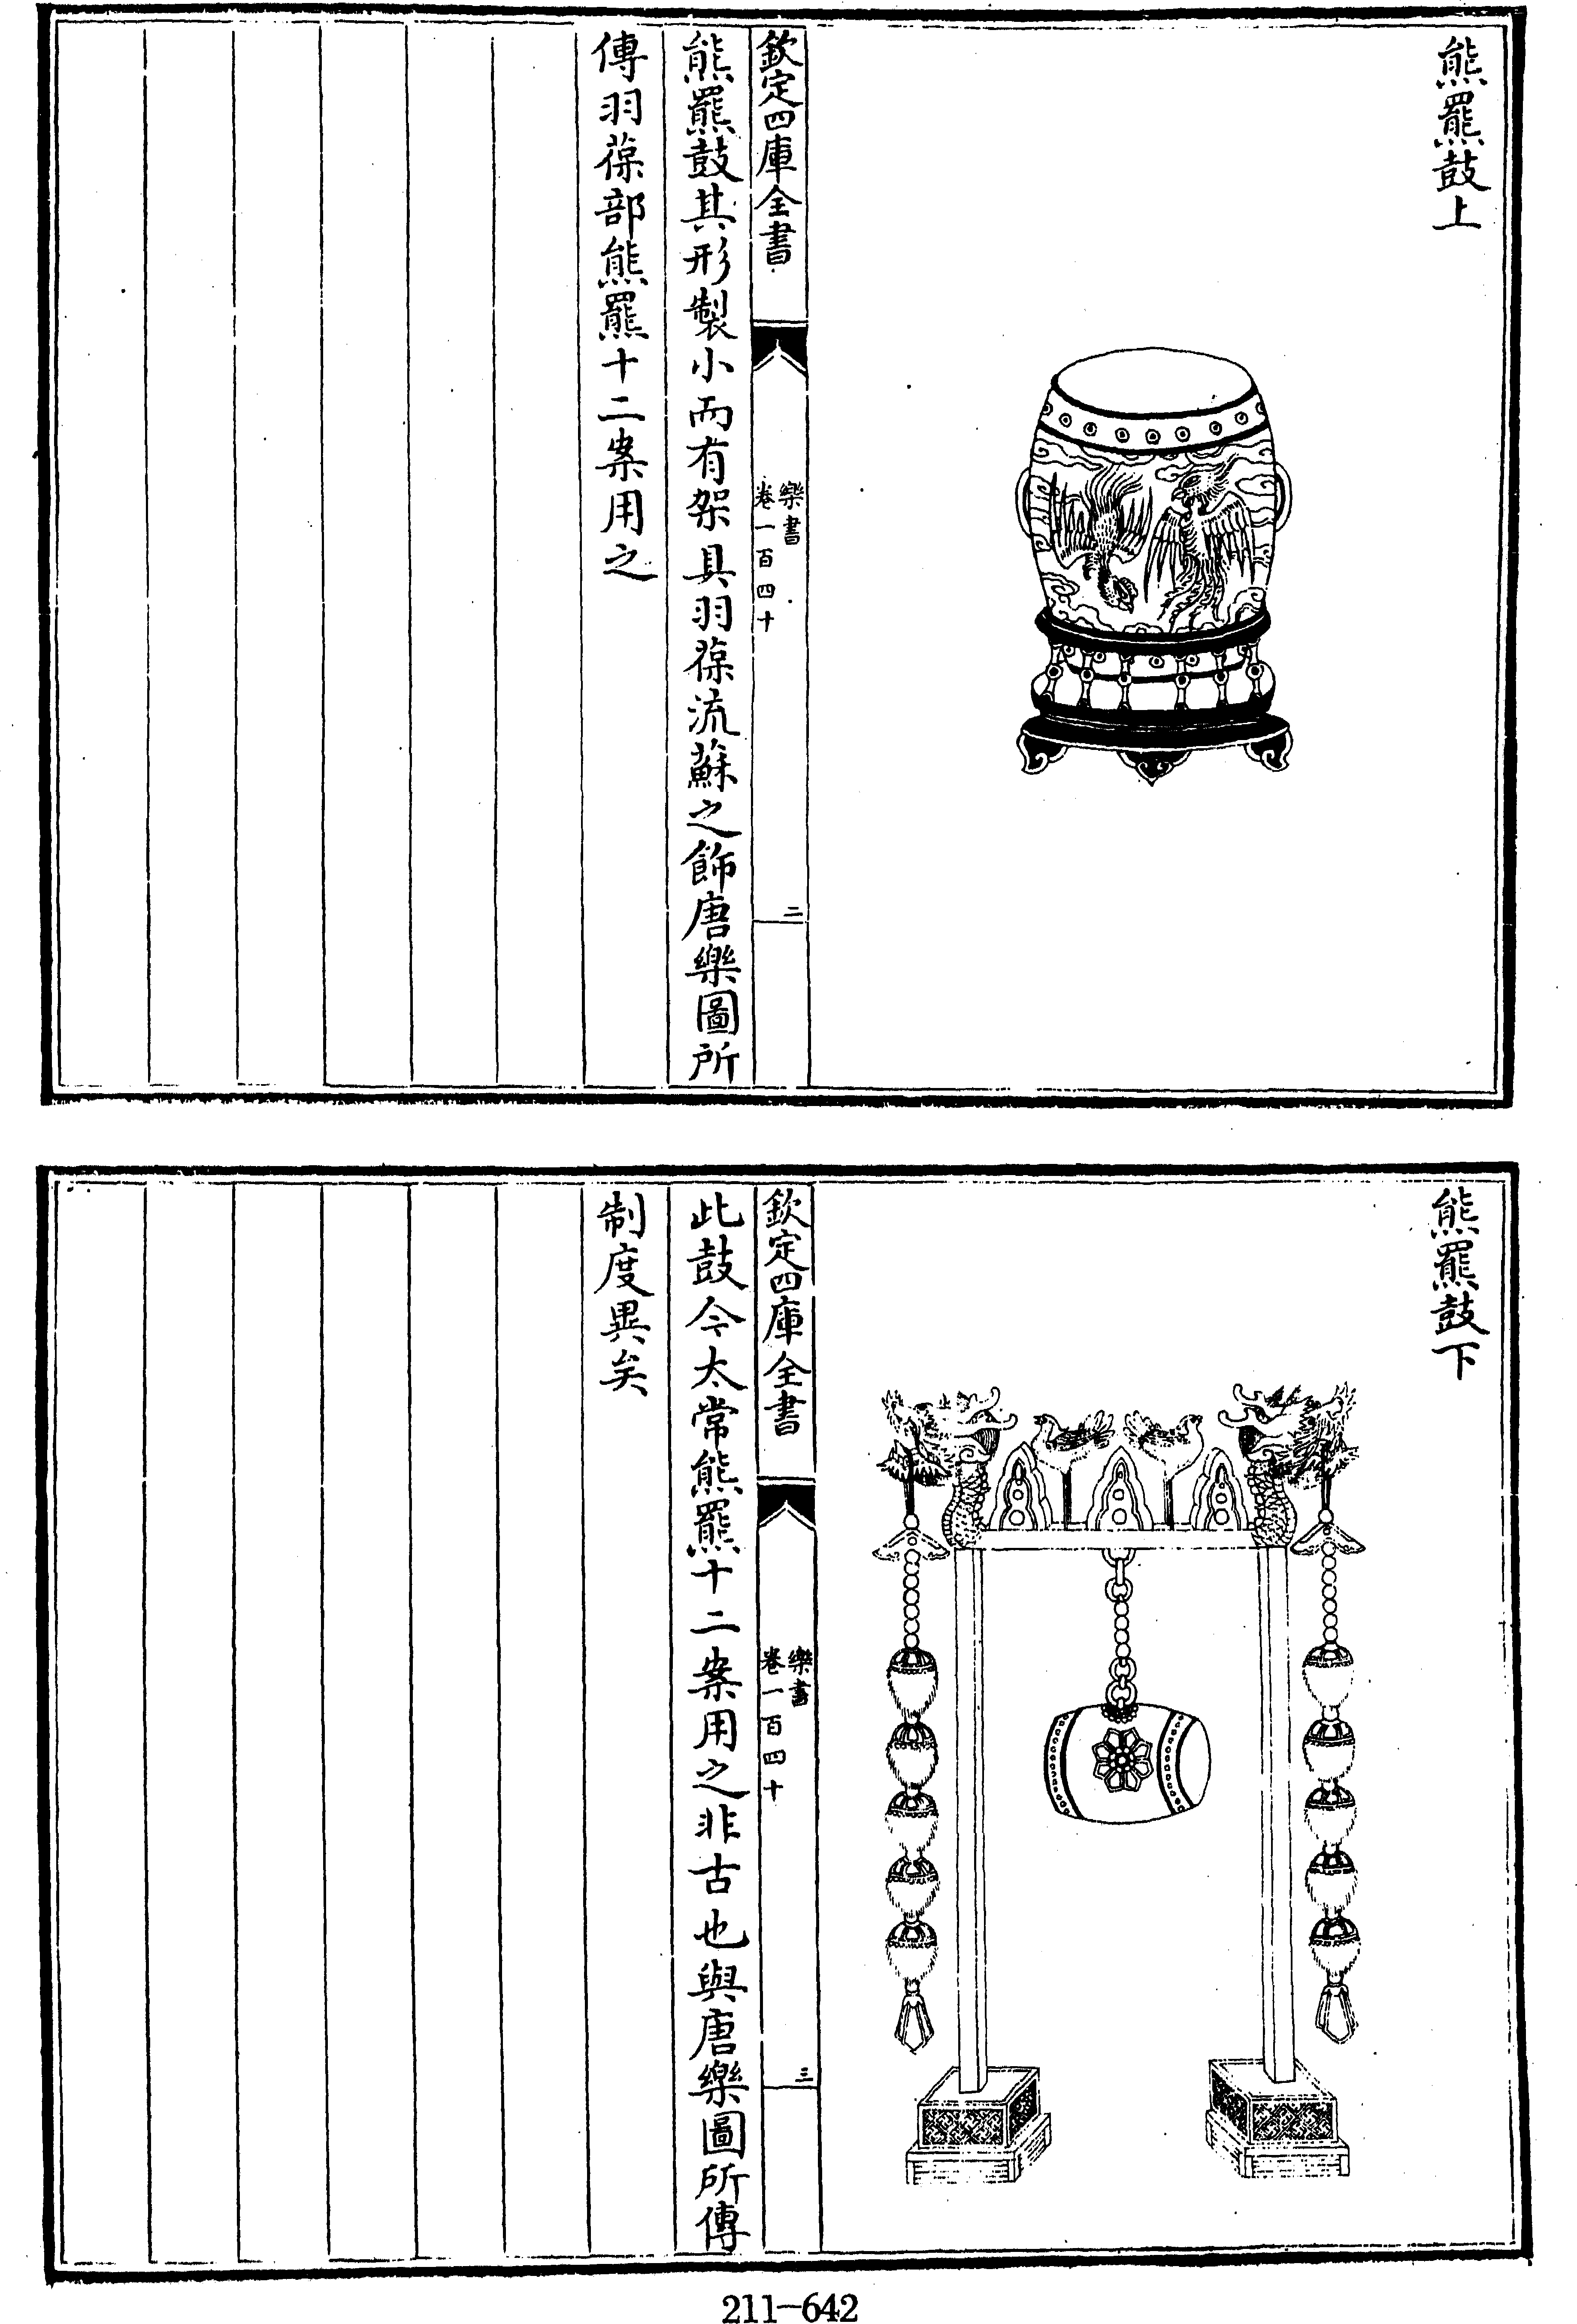 熊羆鼓上
欽定四庫全書
樂書
卷一百四十
二
熊羆鼓其形製小而有架具羽葆流蘇之飾唐樂圖所
傳羽葆部熊羆十二案用之
熊羆鼓下
欽定四庫全書
樂書
卷一百四十
三
此鼓今太常熊羆十二案用之非古也與唐樂圖所傳
制度異矣
211-642